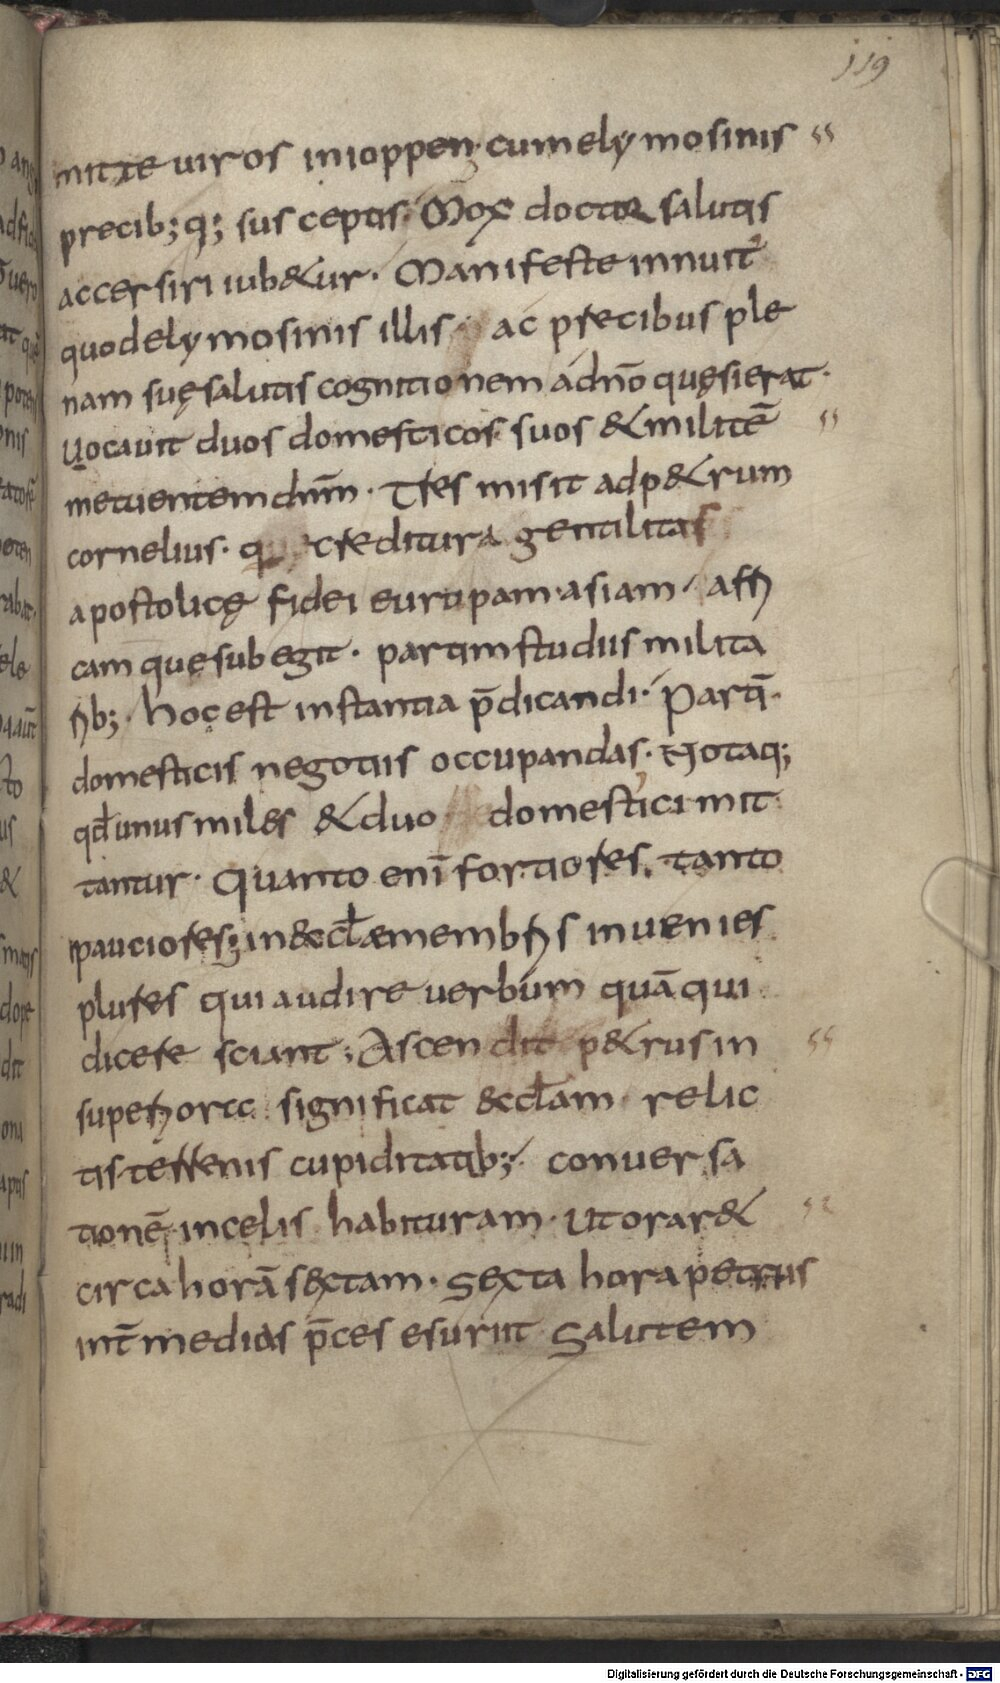 119
mitte uiros inioppen. cumelymosinis
precib;q; susceptis. Mox doctor salutis
accersiri iub&ur. Manifeste innuit
quodelymosinis illis ac precibus ple
nam suę salutis cognitionem adno͞ quęsierat.
Uocauit duos domesticos suos & milite͞
metuentem dnm͞. Tres misit adp&rum
cornelius. q creditura gentilitas
apostolicę fidei europam. asiam. affri
cam quęsubegit. partim studiis milita
rib;. hoc est instantia p͞dicandi. Parti͞.
domesticis negotiis occupandas. Notaq;
qd͞ unus miles & duo domestici mit
tantur. Quanto eni͞ fortiores. tanto
pauciores; in &ccl͞ae membris inuenies
plures qui audire uerbum qua͞ qui
dicere sciant; Ascendit p&rus in
superiora significat &ccl͞am relic
tis terrenis cupiditatib;. conuersa
tione͞ incelis habituram. Ut orar&
circa hora͞ s&xtam. Sexta hora petrus
int͞ medias p͞ces esuriit. Salutem
Digitalisierung gefördert durch die Deutsche Forschungsgemeinschaft - DFG